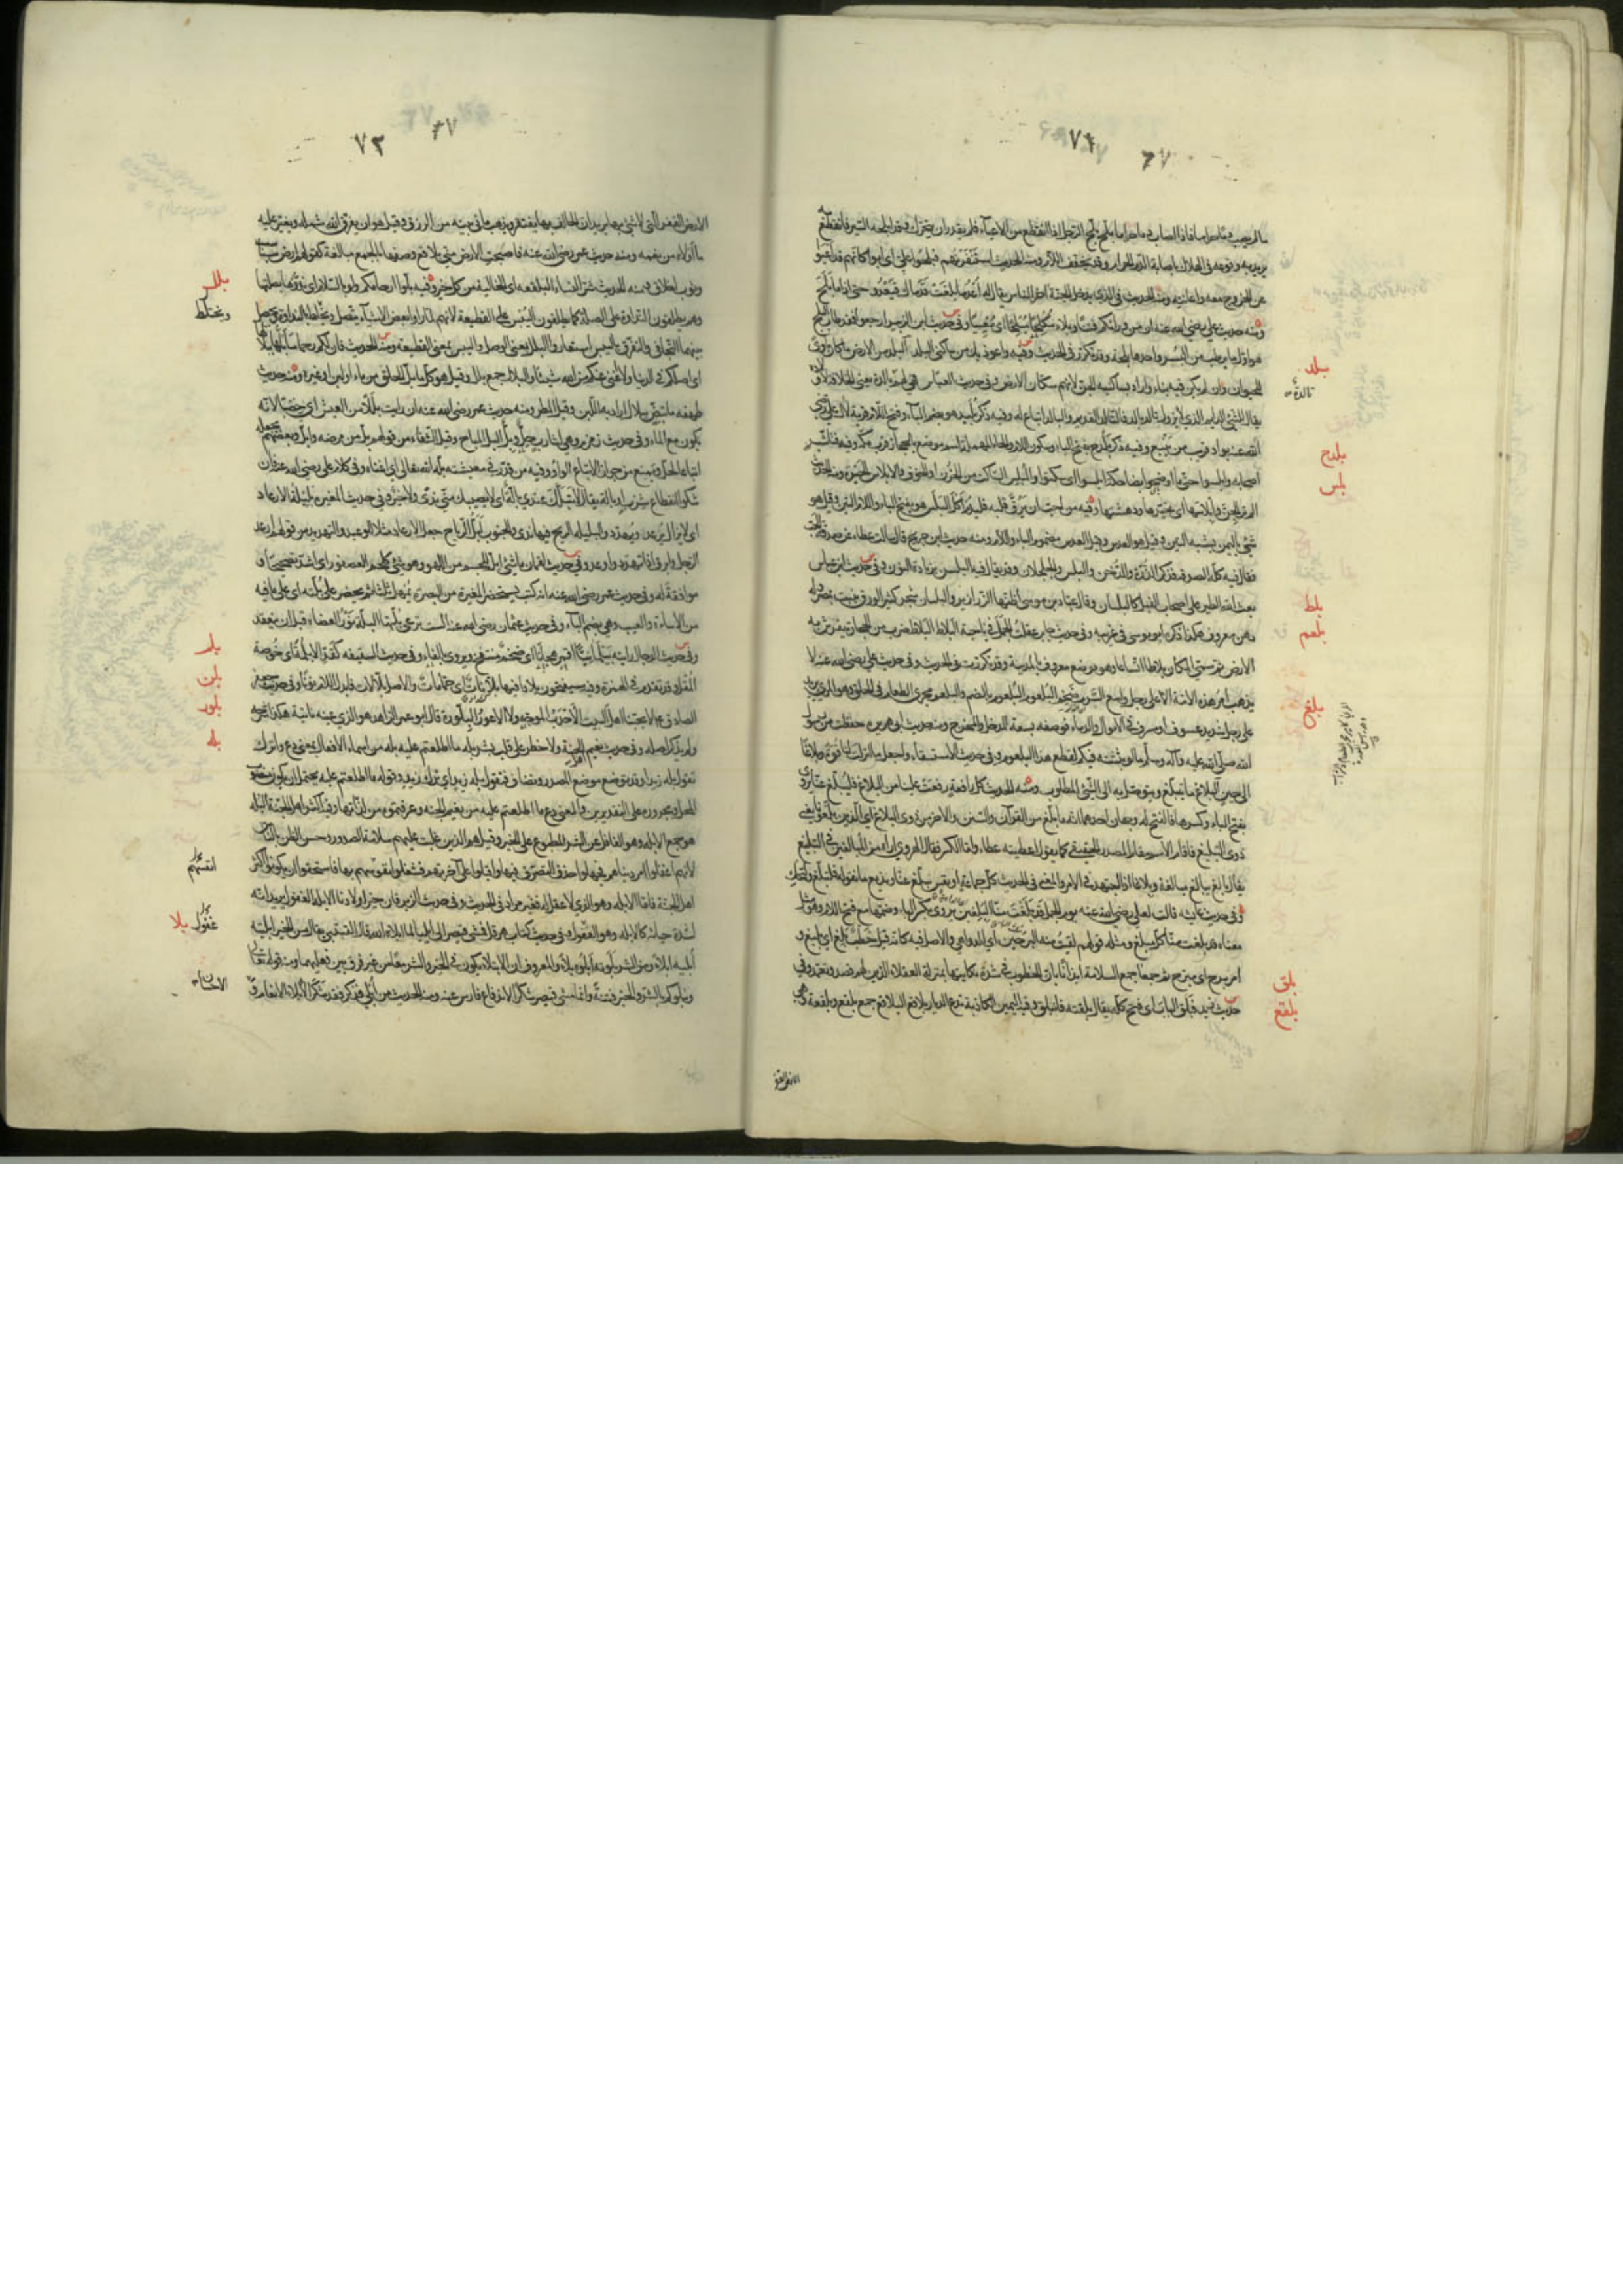 ٧٢
٦٧
ما لم يصب دما حراما فاذا اصاب دما حراما بلح بلح الرجل اذا انقطع من الاعياء فلم يقدر ان يتحرك وقد ابلحه السير فانقطع به
يريد به وقوعه في الهلاك باصابة الدم الحرام وقد تخفف اللام ومنه الحديث استنفرتهم فبلحوا علي اي ابوا كانهم قد اعيوا
عن الخروج معه واعانته ومنه الحديث في الذي يدخل الجنة اخر الناس يقال له اعد ما بلغت قدماك فيعدو حتى اذا ما بلح
ومنه حديث علي رضي الله عنه ان من ورائكم فتنا وبلاء مكلحا مبلحا اي معييا وفي حديث ابن الزبير ارجعوا فقد طاب البلح
هو اول ما يرطب من البسر واحدها بلحة وقد تكرر في الحديث وفيه واعوذ بك من ساكني البلد البلد من الارض ما كان ماوى
للحيوان وان لم يكن فيه بناء واراد بساكنيه الجن لانهم سكان الارض وفي حديث العباس فهي لهم تالدة بالدة يعني الخلافة لاولاده
يقال للشيء الدايم الذي لا يزول تالد بالد فالتالد القديم والبالد اتباع له وفيه ذكر بليد هو بضم الباء وفتح اللام قرية لال علي رضي
الله عنه بواد قريب من ينبع وفيه ذكر بلدح بفتح الباء وسكون اللام والحاء المهملة اسم موضع بالحجاز قرب مكة وفيه فتاشب
اصحابه وابلسوا حتى ما اوضحوا بضاحكة ابلسوا اي سكتوا والمبلس الساكت من الحزن او الخوف والابلاس الحيرة ومنه الحديث
الم تر الجن وابلاسها اي تحيرها ودهشها وفيه من احب ان يرق قلبه فليدم اكل البلس هو بفتح الباء واللام التين وقيل هو
شيء باليمن يشبه التين وقيل هو العدس وقيل العدس مضموم الباء واللام ومنه حديث ابن جريج قال سالت عطاء عن صدقة الحب
فقال فيه كله الصدقة فذكر الذرة والدخن والبلس والجلجلان وقد يقال فيه البلسن بزيادة النون وفي حديث ابن عباس
بعث الله الطير على اصحاب الفيل كالبلسان وقال عباد بن موسى اظنها الزرازير والبلسان شجر كثير الورق ينبت بمصر وله
دهن معروف هكذا ذكره ابو موسى في غريبه وفي حديث جابر عقلت الجمل في ناحية البلاط البلاط ضرب من الحجارة يفرش به
الارض ثم سمي المكان بلاطا اتساعا وهو موضع معروف بالمدينة وقد تكررت في الحديث وفي حديث علي رضي الله عنه لا
يذهب امر هذه الامة الا على رجل واسع السرم ضخم البلعوم البلعوم بالضم والبلعم مجرى الطعام في الحلق وهو المريء يريد
على رجل شديد عسوف او مسرف في الاموال والدماء فوصفه بسعة المدخل والمخرج ومنه حديث ابي هريرة حفظت من رسول
الله صلى الله عليه وآله وسلم ما لو بثثته فيكم لقطع هذا البلعوم وفي حديث الاستسقاء واجعل ما انزلت لنا قوة وبلاغا
الى حين البلاغ ما يتبلغ ويتوصل به الى الشيء المطلوب ومنه الحديث كل رافعة رفعت علينا من البلاغ فليبلغ عنا يروى
بفتح الباء وكسرها فالفتح له وجهان احدهما انه ما بلغ من القرآن والسنن والاخر من ذوي البلاغ اي الذين بلغونا يعني
ذوي التبليغ فاقام الاسم مقام المصدر الحقيقي كما يقول اعطيته عطاء واما الكسر فقال الهروي اراه من المبالغين في التبليغ
يقال بالغ يبالغ مبالغة وبلاغا اذا اجتهد في الامر والمعنى في الحديث كل جماعة او نفس تبلغ عنا وتذيع ما نقوله فلتبلغ ولتحك
وفي حديث عايشة قالت لعلي رضي الله عنه يوم الجمل قد بلغت منا البلغين يروى بكسر الباء وضمها مع فتح اللام وهو مثل
معناه قد بلغت منا كل مبلغ ومثله قولهم لقيت منه البرحين اي الدواهي والاصل فيه كانه قيل خطب بلغ اي بليغ و
امر برح اي مبرح ثم جمعا جمع السلامة ايذانا بان الخطوب في شدة نكايتها بمنزلة العقلاء الذين لهم قصد وتعمد وفي
حديث زيد فبلق الباب اي فتح كله يقال بلقته فانبلق وفيه اليمين الكاذبة تدع الديار بلاقع البلاقع جمع بلقع وبلقعة وهي
الارض القفر
بلد
تالدة
بلدح
بلس
بلط
بلعم
بلغ
بلق
بلقع
٧٣
٦٧
الارض القفر التي لا شيء بها يريد ان الحالف بها يفتقر ويذهب ما في بيته من الرزق وقيل هو ان يفرق الله شمله ويغير عليه
ما اولاه من نعمه ومنه حديث عمر رضي الله عنه فاصبحت الارض مني بلاقع وصفها بالجمع مبالغة كقولهم ارض سباسب
وثوب اخلاق ومنه الحديث شر النساء البلقعة اي الخالية من كل خير وفيه بلوا ارحامكم ولو بالسلام اي ندوها بصلتها
وهم يطلقون النداوة على الصلة كما يطلقون اليبس على القطيعة لانهم لما راوا بعض الاشياء يتصل ويختلط بالنداوة ويحصل
بينهما التجافي والتفرق باليبس استعاروا البلل لمعنى الوصل واليبس لمعنى القطيعة ومنه الحديث فان لكم رحما سابلها ببلالها
اي اصلكم في الدنيا ولا اغني عنكم من الله شيئا والبلال جمع بلل وقيل هو كل ما بل الحلق من ماء او لبن او غيره ومنه حديث
طهفة ما تبض ببلال اراد به اللبن وقيل المطر ومنه حديث عمر رضي الله عنه ان رايت بللا من العيش اي خصبا لانه
يكون مع الماء وفي حديث زمزم وهي لشارب حل وبل البل المباح وقيل الشفاء من قولهم بل من مرضه وابل وبعضهم يجعله
اتباعا لحل ويمنع من جواز الاتباع الواو وفيه من قدر في معيشته بله الله تعالى اي اغناه وفي كلام علي رضي الله عنه فان
شكوا انقطاع شرب او بالة يقال لا تبلك عندي بالة اي لا يصيبك مني ندى ولا خير وفي حديث المغيرة بليلة الارعاد
اي لا يزال يرعد ويهدد والبليلة الريح فيها ندى والجنوب ابل الرياح جعل الارعاد مثلا للوعيد والتهديد من قولهم ارعد
الرجل وابرق اذا تهدد واوعد وفي حديث لقمان ما شيء ابل للجسم من اللهو وهو شيء كلحم العصفور اي اشد تصحيحا و
موافقة له وفي حديث عمر رضي الله عنه انه كتب يستحضر المغيرة من البصرة يمهل ثلاثا ثم يحضر على بلته اي على ما فيه
من الاساءة والعيب وهي بضم الباء وفي حديث عثمان رضي الله عنه الست ترعى بلتها البلة نور العضاه قبل ان ينعقد
وفي حديث الدجال رايته بيلمانيا اقمر هجانا اي ضخم منتفخ ويروى بالفاء وفي حديث السقيفة كقد الابلمة اي خوصة
المقل وقد تقدم في الهمزة وفيه ستفتحون بلادا فيها بلانات اي حمامات والاصل بلالات فابدل اللام نونا وفي حديث جعفر
الصادق ع لا يحبنا اهل البيت الاحدب الموجه ولا الاعور البلورة قال ابو عمر الزاهد هو الذي عينه ناتية هكذا شرحه
ولم يذكر اصله وفي حديث نعيم الجنة ولا خطر على قلب بشر بله ما اطلعتم عليه بله من اسماء الافعال بمعنى دع واترك
تقول بله زيدا وقد توضع موضع المصدر وتضاف فتقول بله زيد اي ترك زيد وقوله ما اطلعتم عليه يحتمل ان يكون منصوب
المحل ومجروره على التقديرين والمعنى دع ما اطلعتم عليه من نعيم الجنة وعرفتموه من لذاتها وفيه اكثر اهل الجنة البله
هو جمع الابله وهو الغافل عن الشر المطبوع على الخير وقيل هم الذين غلبت عليهم سلامة الصدور وحسن الظن بالناس
لانهم اغفلوا امر دنياهم فجهلوا حذق التصرف فيها واقبلوا على آخرتهم فشغلوا انفسهم بها فاستحقوا ان يكونوا اكثر
اهل الجنة فاما الابله وهو الذي لا عقل له فغير مراد في الحديث وفي حديث الزبرقان خير اولادنا الابله العقول يريد انه
لشدة حيائه كالابله وهو العقول وفي حديث كتاب هرقل فمشى قيصر الى ايليا لما ابلاه الله قال القتيبي يقال من الخير ابليته
ابليه ابلاء ومن الشر بلوته ابلوه بلاء والمعروف ان الابتلاء يكون في الخير والشر معا من غير فرق بين فعليهما ومنه قوله تعالى
ونبلوكم بالشر والخير فتنة وانما مشى قيصر شكرا لاندفاع فارس عنه ومنه الحديث من ابلي فذكر فقد شكر الابلاء الانعام و
بلل
ويختلط
بلم
بلن
بلور
بله
انفسهم
عقول
بلا
الاحسان